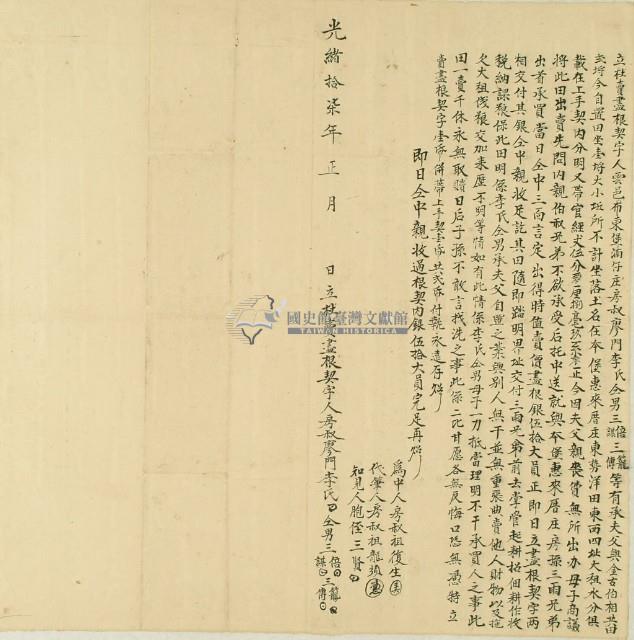 立杜賣盡根契字人雲邑布東堡湳仔庄房叔廖門李氏仝男三倍三籠三謀三傳等有承夫父與全古伯相共田
坵埒今自置田坐壹埒大小坵所不計坐落土名在本堡惠來厝庄東勢洋田東西四址大租水分俱
載在上手契內分明又帶官經丈伍分正今因夫父親喪費無所出办母子商議
將此田出賣先問內親伯叔兄弟不欲承受后托中送就與本堡惠來厝庄房孫三雨兄弟
出首承買當日仝中三面言定出得時值賣價盡根銀伍拾大員正即日立盡根契字兩
相交付其銀仝中親收足訖其田隨即踏明界址交付三雨兄弟前去掌管起耕招佃耕作收
稅納課粮保此田明係李氏仝男承夫父自置之業與別人無干並無重張典賣他人財物以及拖
欠大租伐粮交加來歷不明等情如有此情係李氏仝男母子一力抵當理明不干承買人之事此
田一賣千休永無取贖日后子孫不敢言找洗之事此係二比甘愿各無反悔口恐無憑特立
賣盡根契字壹紙併帶上手契壹紙共弍紙付執永遠存炤
即日仝中親收過根契內銀伍拾大員完足再炤
為中人房叔祖復生
代筆人房叔祖龍頭
知見人胞侄三賢
光緒拾柒年正月 日立杜賣盡根契字人房叔廖門李氏仝男三倍三籠三謀三傳
國史館臺灣文獻館
TAIWAN HISTORICA